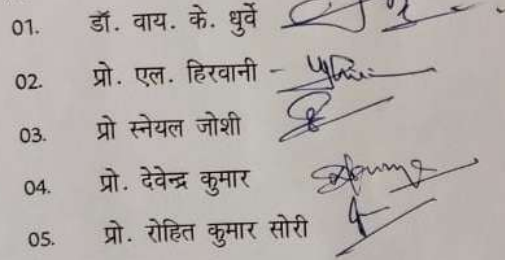 01. डॉ. वाय. के. धुर्वे
02. प्रो. एल. हिरवानी -
03. प्रो स्नेयल जोशी
04. प्रो. देवेन्द्र कुमार
05. प्रो. रोहित कुमार सोरी